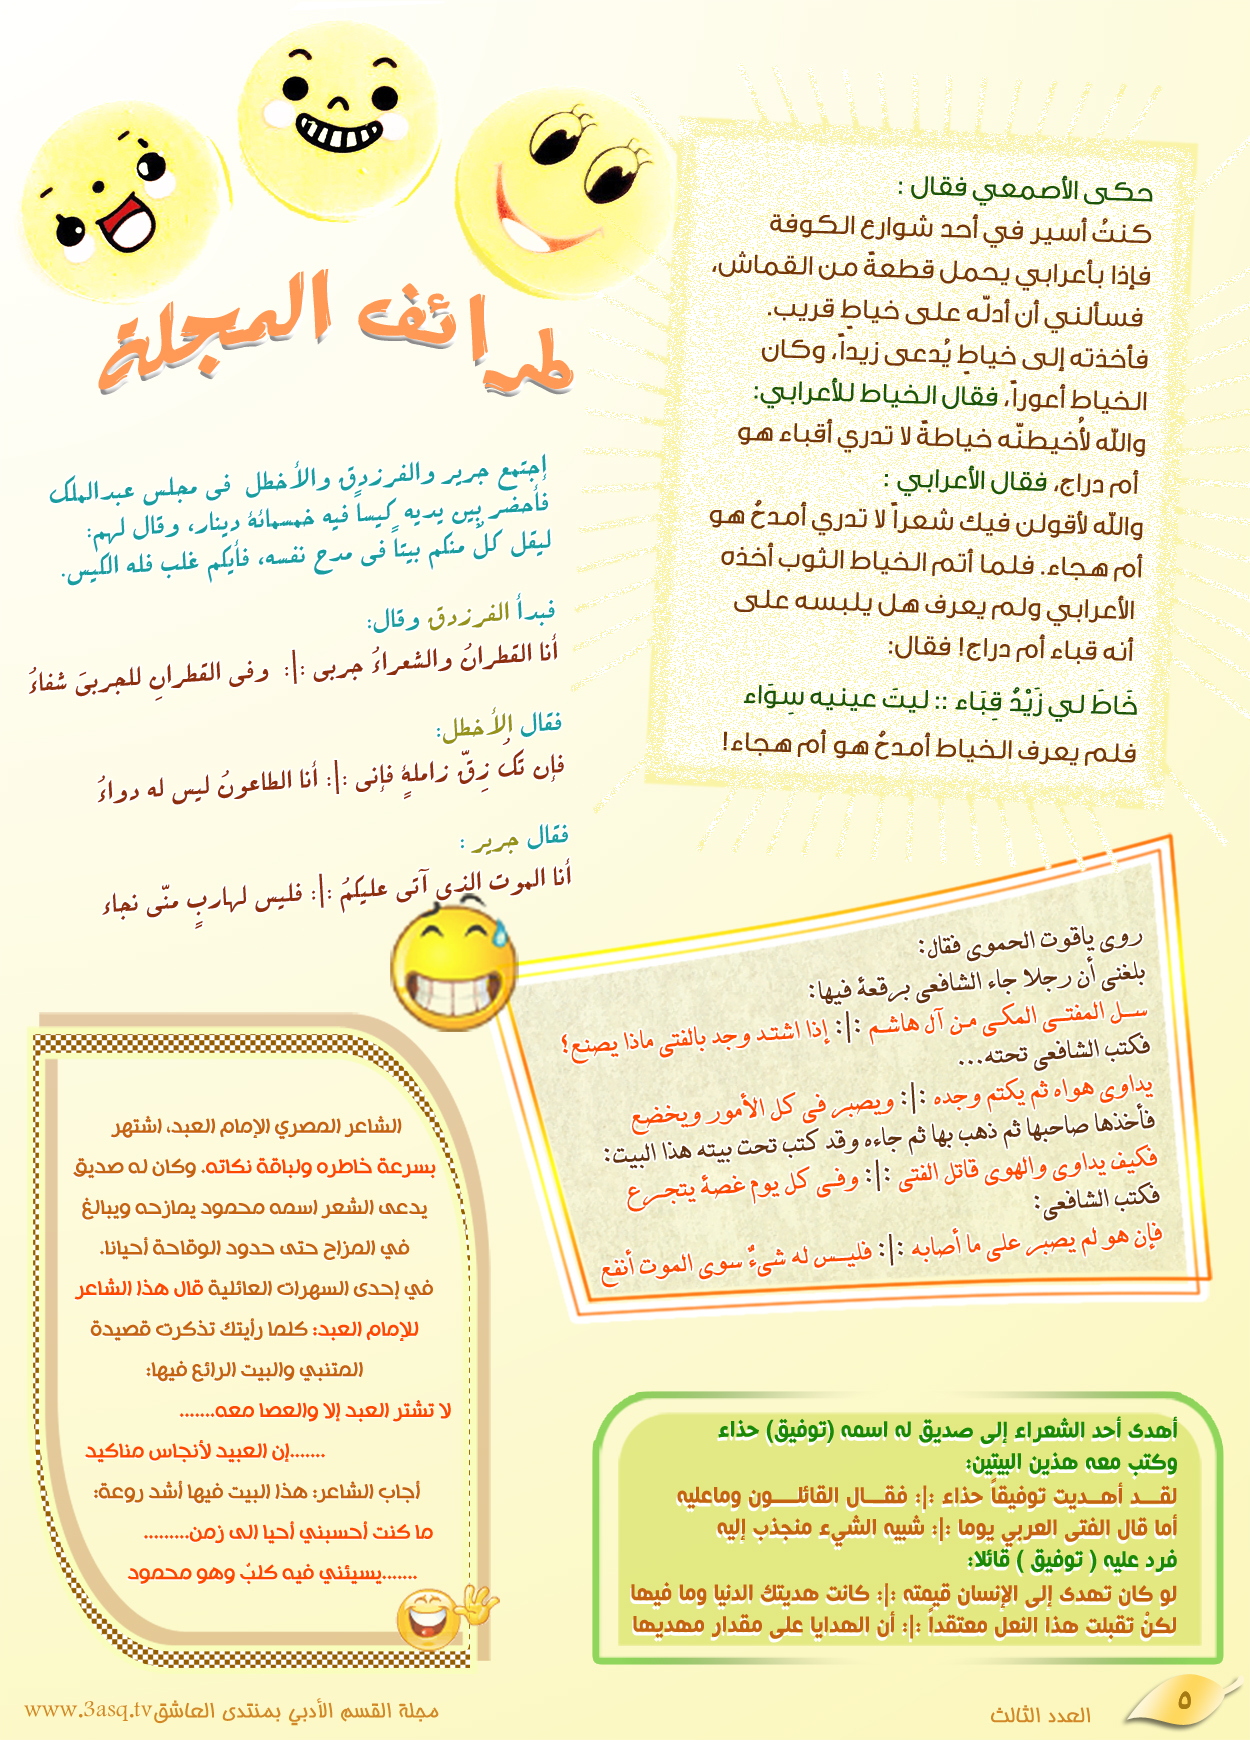 طرائف المجلة
حكى الأصمعي فقال :
كنتُ أسير في أحد شوارع الكوفة
فإذا بأعرابي يحمل قطعةً من القماش،
فسألني أن أدلّه على خياطٍ قريب.
فأخذته إلى خياطٍ يُدعى زيداً، وكان
الخياط أعوراً، فقال الخياط للأعرابي:
والله لأُخيطنّه خياطةً لا تدري أقباء هو
أم دراج، فقال الأعرابي :
والله لأقولن فيك شعراً لا تدري أمدحُ هو
أم هجاء. فلما أتم الخياط الثوب أخذه
الأعرابي ولم يعرف هل يلبسه على
أنه قباء أم دراج! فقال:
خَاطَ لي زَيْدٌ قِبَاء :: ليتَ عينيه سِوَاء
فلم يعرف الخياط أمدحُ هو أم هجاء!
إجتمع جرير والفرزدق والأخطل فى مجلس عبدالملك
فأحضر بين يديه كيساً فيه خمسمائة دينار، وقال لهم:
ليقل كلٌ منكم بيتاً فى مدح نفسه، فأيكم غلب فله الكيس.
فبدأ الفرزدق وقال:
أنا القطرانُ والشعراءُ جربى :|: وفى القطرانِ للجربىَ شفاءُ
فقال الأخطل:
فإن تَكُ زِقّ زاملةٍ فإنى :|: أنا الطاعونُ ليس له دواءُ
فقال جرير :
أنا الموت الذى آتى عليكمُ :|: فليس لهاربٍ منّى نجاء
روى ياقوت الحموى فقال:
بلغنى أن رجلا جاء الشافعى برقعة فيها:
سـل المفتـى المكـى مـن آل هاشـم :|: إذا اشتـد وجد بالفتى ماذا يصنع؟
فكتب الشافعى تحته...
يداوى هواه ثم يكتم وجده :|: ويصبر فى كل الأمور ويخضع
فأخذها صاحبها ثم ذهب بها ثم جاءه وقد كتب تحت بيته هذا البيت:
فكيف يداوى والهوى قاتل الفتى :|: وفـى كل يوم غصة يتجـرع
فكتب الشافعى:
فإن هو لم يصبر على ما أصابه :|: فليـس له شىءٌ سوى الموت أنفع
الشاعر المصري الإمام العبد، اشتهر
بسرعة خاطره ولباقة نكاته. وكان له صديق
يدعى الشعر اسمه محمود يمازحه ويبالغ
في المزاح حتى حدود الوقاحة أحيانا.
في إحدى السهرات العائلية قال هذا الشاعر
للإمام العبد: كلما رأيتك تذكرت قصيدة
المتنبي والبيت الرائع فيها:
لا تشتر العبد إلا والعصا معه.......
.......إن العبيد لأنجاس مناكيد
أجاب الشاعر: هذا البيت فيها أشد روعة:
ما كنت أحسبني أحيا الى زمن.........
.......يسيئني فيه كلبٌ وهو محمود
أهدى أحد الشعراء إلى صديق له اسمه (توفيق) حذاء
وكتب معه هذين البيتين:
لقـــد أهــديت توفيقاً حذاء :|: فقـــال القائلـــــون وماعليه
أما قال الفتى العربي يوما :|: شبيه الشيء منجذب إليه
فرد عليه ( توفيق ) قائلا:
لو كان تهدى إلى الإنسان قيمته :|: كانت هديتك الدنيا وما فيها
لكنْ تقبلت هذا النعل معتقداً :|: أن الهدايا على مقدار مهديها
٥
العدد الثالث
مجلة القسم الأدبي بمنتدى العاشق www.3asq.tv